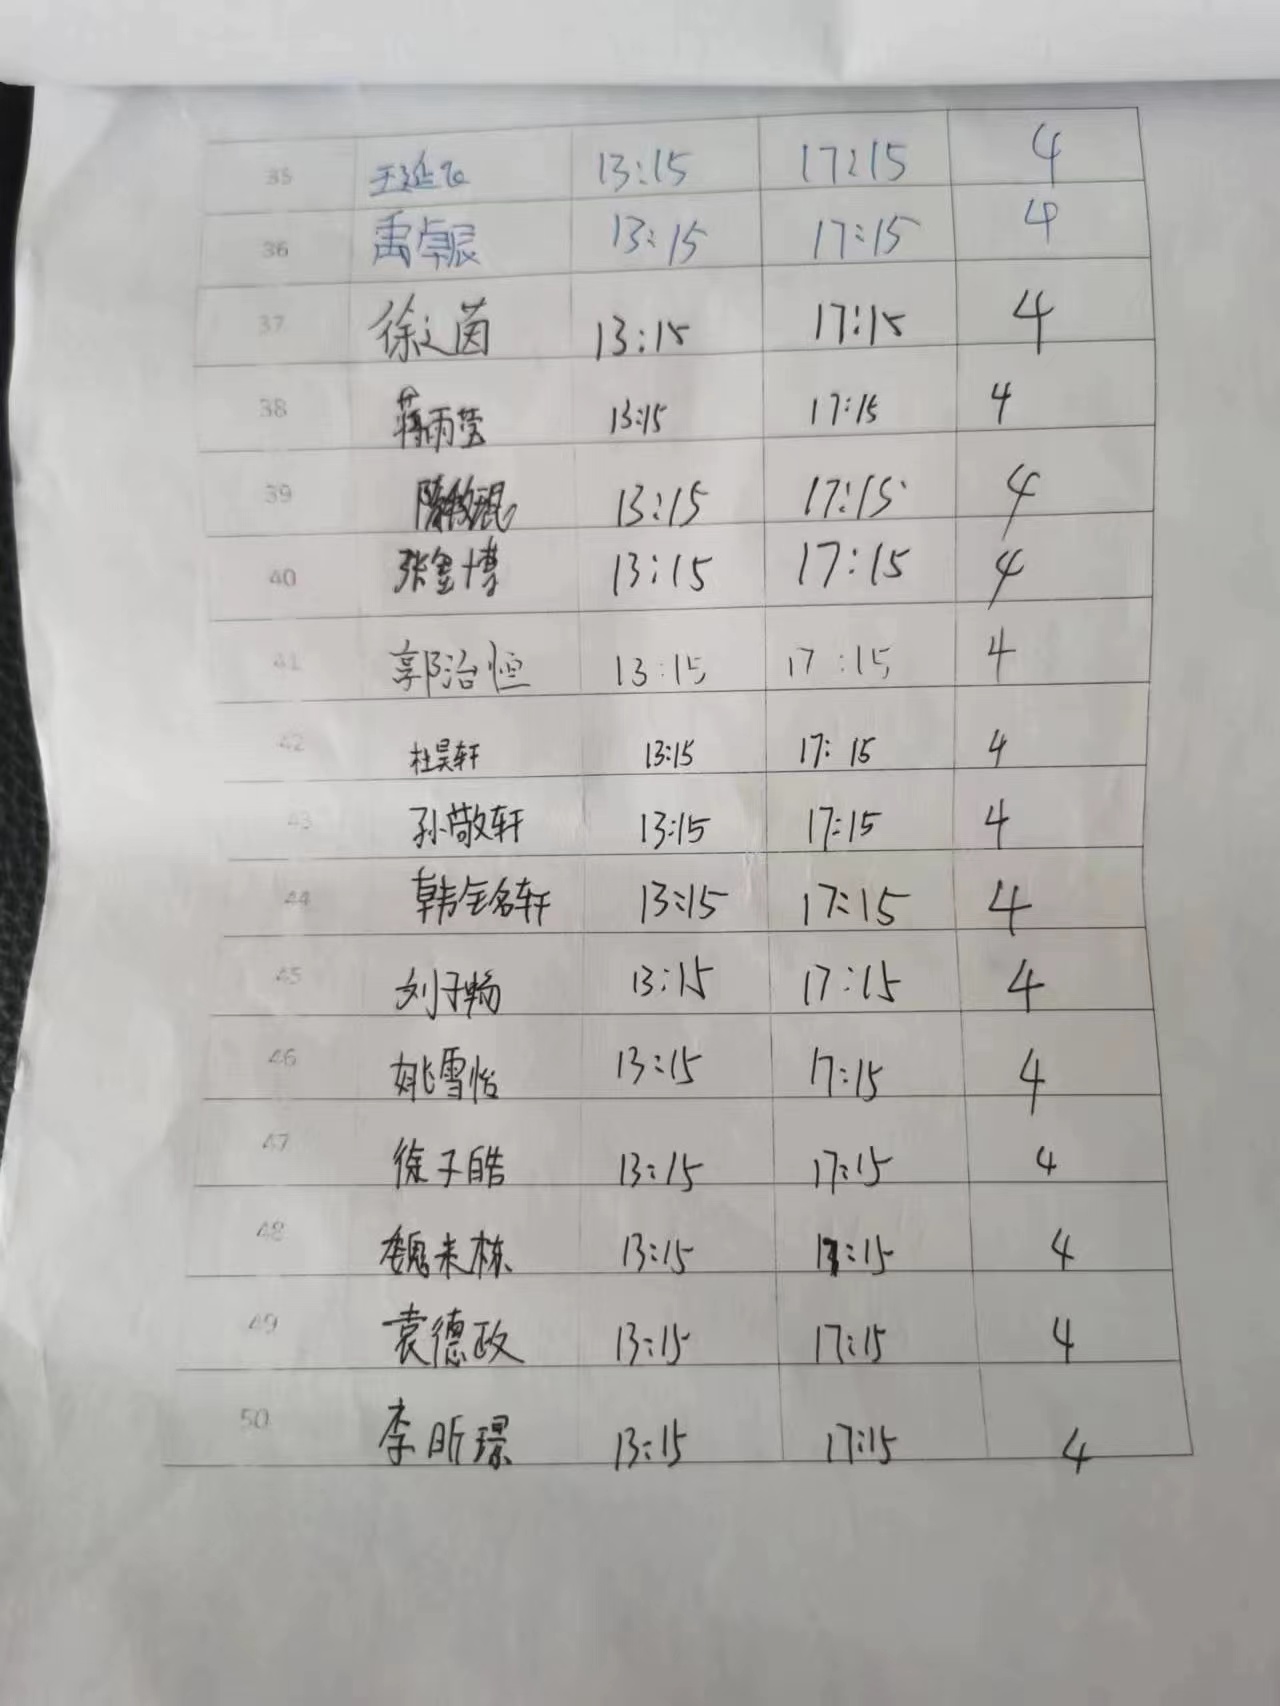 35 王延飞 13:15 17:15 4
36 禹卓辰 13:15 17:15 4
37 徐之茵 13:15 17:15 4
38 蒋雨莹 13:15 17:15 4
39 13:15 17:15 4
40 张金博 13:15 17:15 4
41 郭治恒 13:15 17:15 4
42 杜昊轩 13:15 17:15 4
43 孙敬轩 13:15 17:15 4
44 韩金名轩 13:15 17:15 4
45 刘子畅 13:15 17:15 4
46 姚雪怡 13:15 17:15 4
47 徐子皓 13:15 17:15 4
48 魏来栋 13:15 17:15 4
49 袁德政 13:15 17:15 4
50 李昕璟 13:15 17:15 4